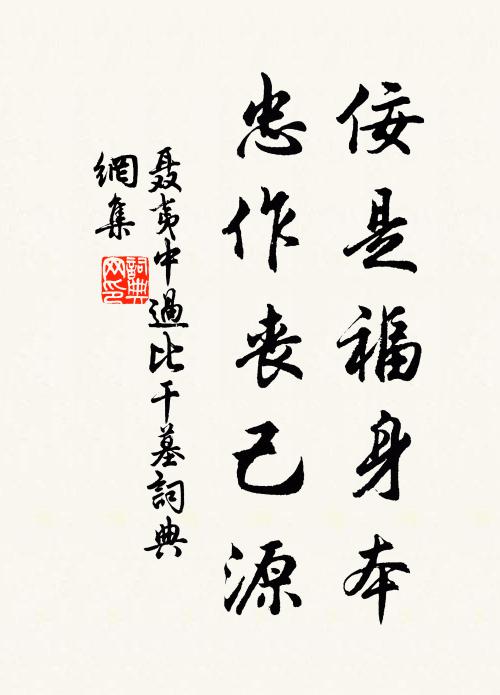 佞是福身本
忠作喪己源
聂夷中過比干墓詞典
網集
詞典
网印